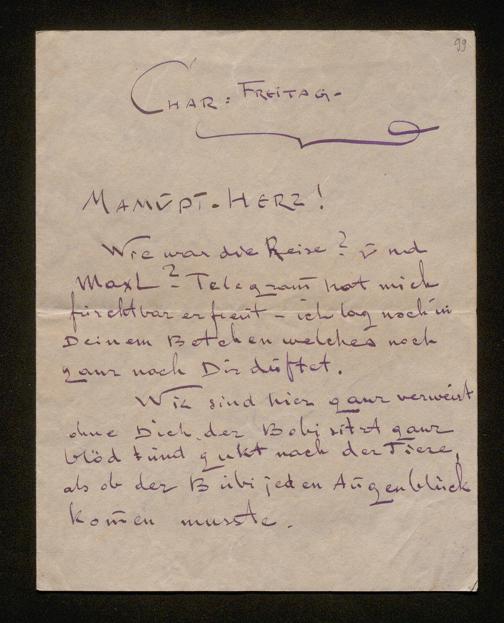 99
CHAR: FREITAG-
MAMŪPT-HERZ!
Wie war die Reise? ūnd
MaxL? - Telegram̄ hat mich
fürchtbar erfreut - ich lag noch in
Deinem Betchen welches noch
ganz nach Dir düftet.
Wir sind hier ganz verweist
ohne Dich der Bobj sitzt ganz
blöd ūnd gukt nach der Tiere,
als ob der Būbi jeden Aūgenblück
kom̄en musste.